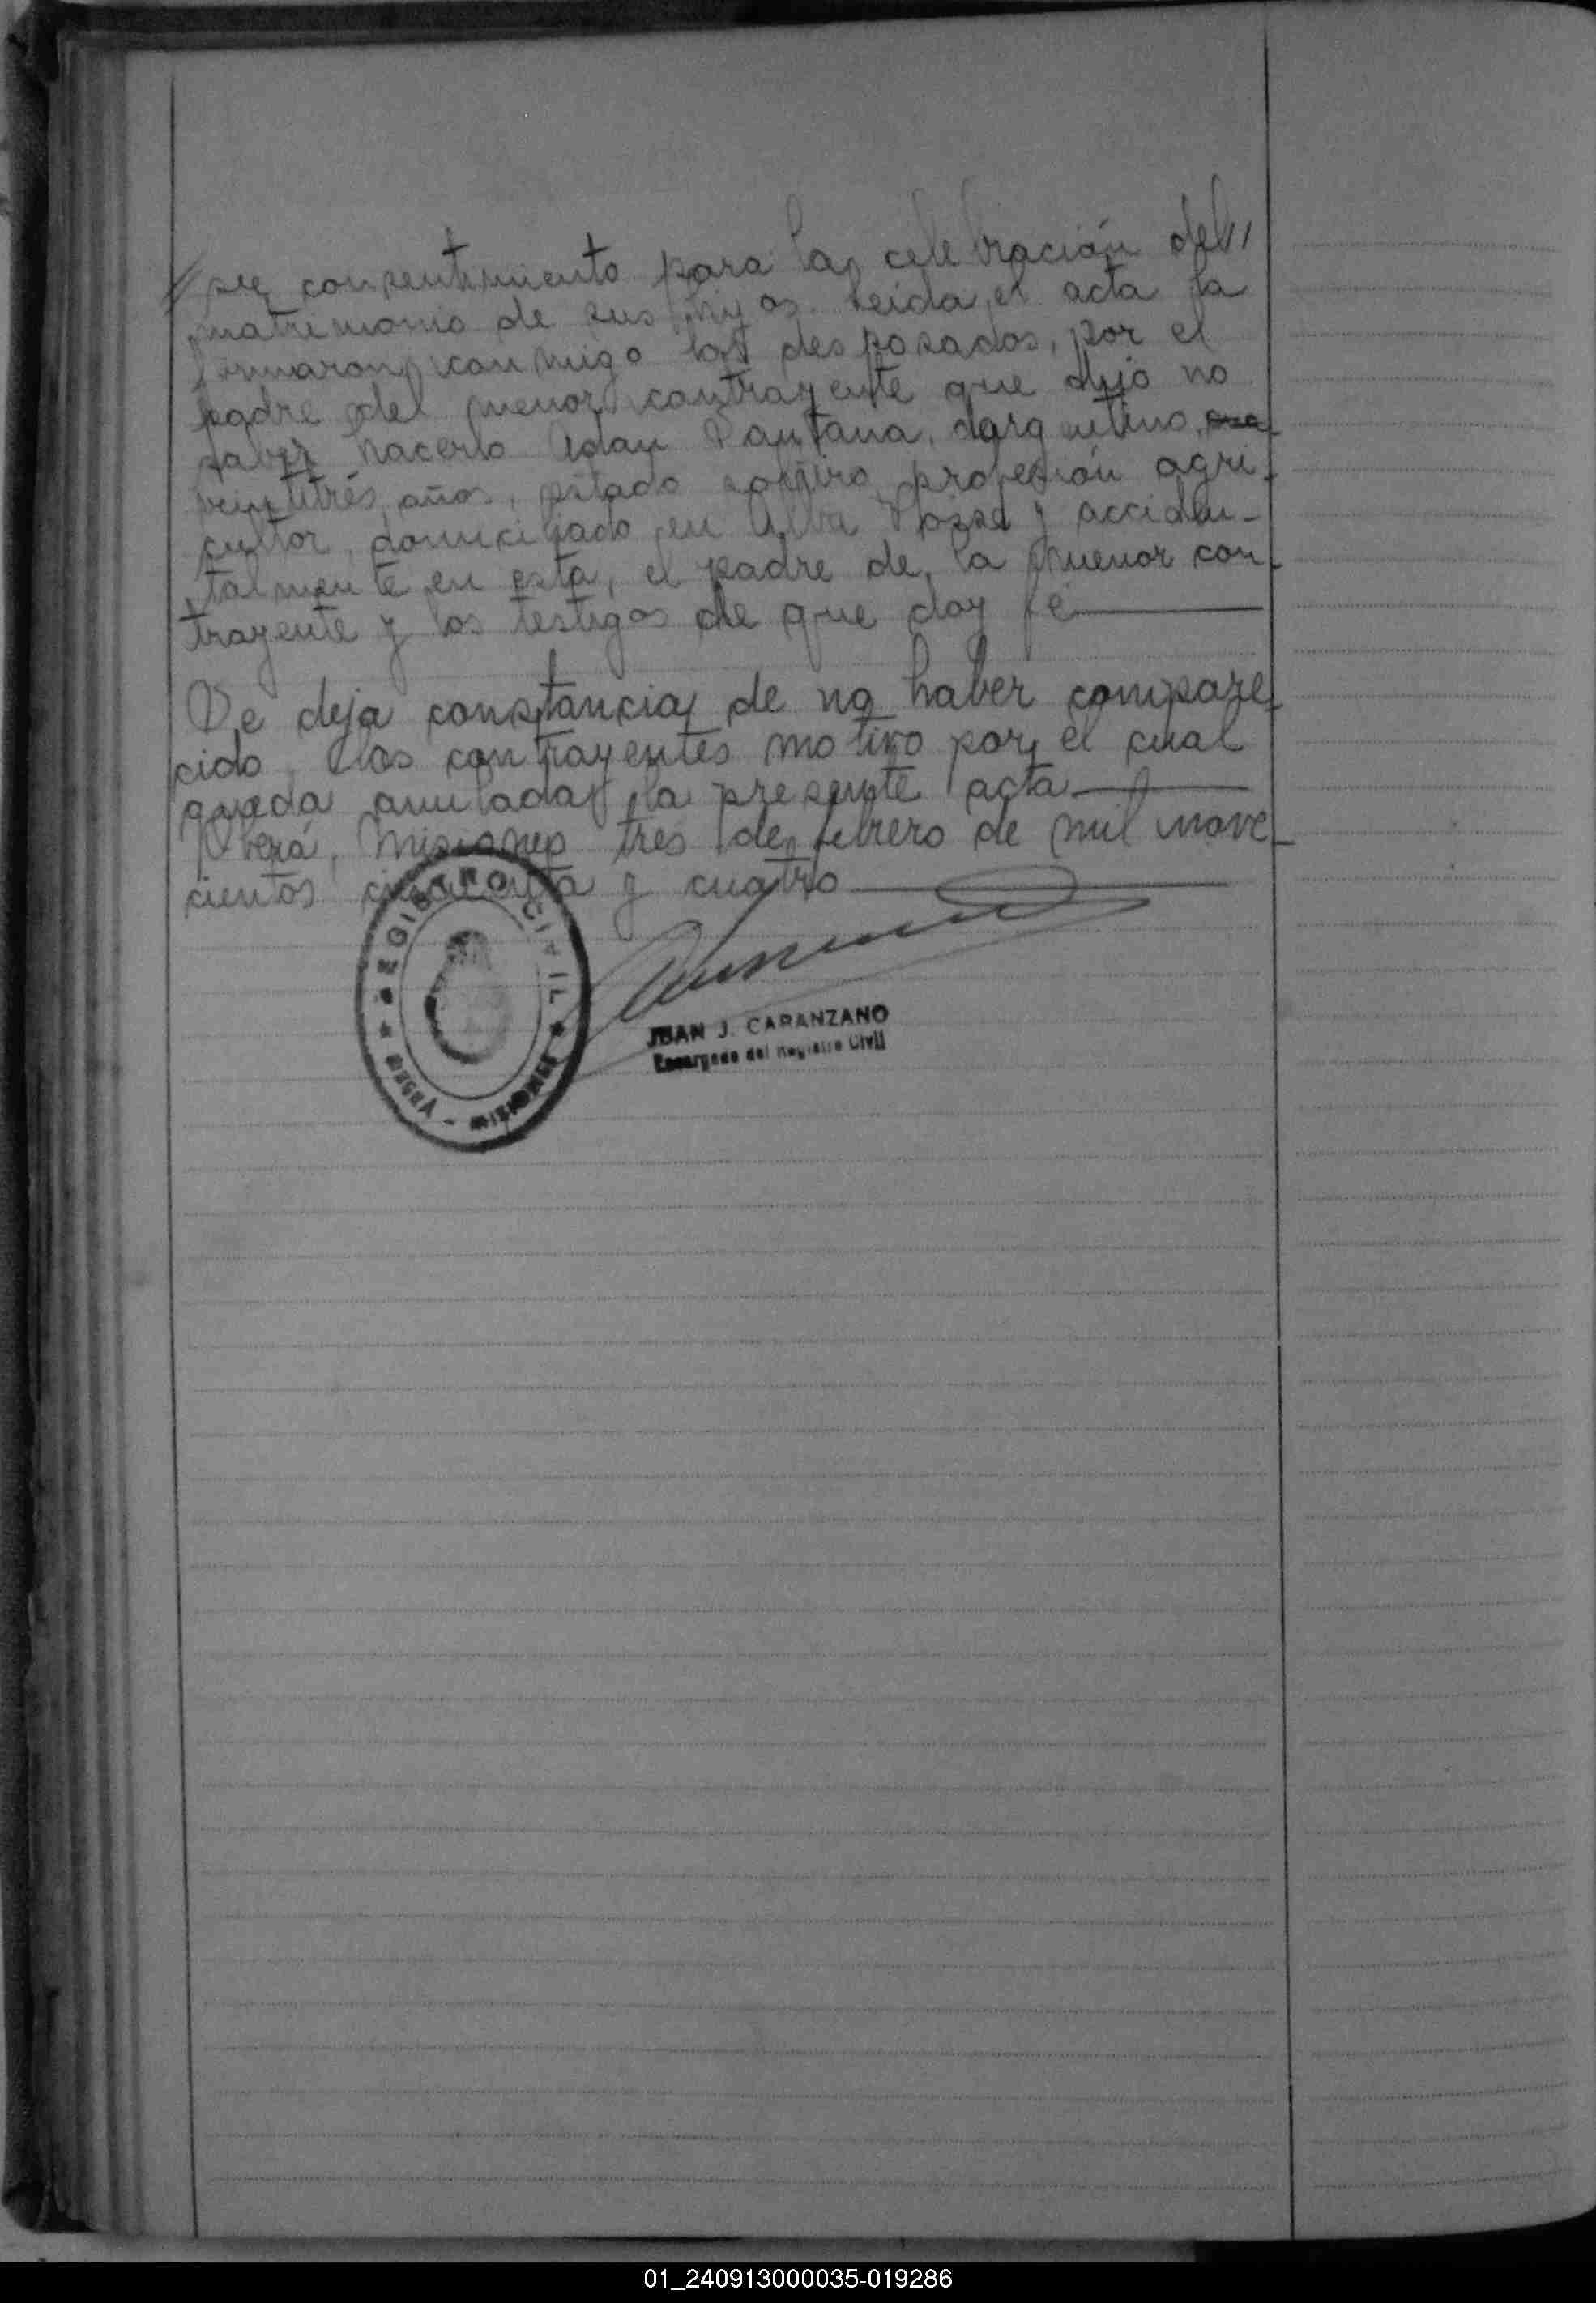 // su consentimiento para la celebración del //
matrimonio de sus hijos. Leída el acta la
firmaron conmigo los desposados, por el
padre del menor contrayente que dijo no
saber hacerlo Adan Santana, argentino,
veintitrés años, estado soltero, profesión agri-
cultor, domiciliado en Alba Posse y acciden-
talmente en esta, el padre de la menor con-
trayente y los testigos de que doy fé
Se deja constancia de no haber compare-
cido los contrayentes motivo por el cual
queda anulada la presente acta
Oberá, Misiones tres de febrero de mil nove-
cientos cincuenta y cuatro
REGISTRO CIVIL
OBERA - MISIONES
JUAN J. CARANZANO
Encargado del Registro Civil
01_240913000035-019286